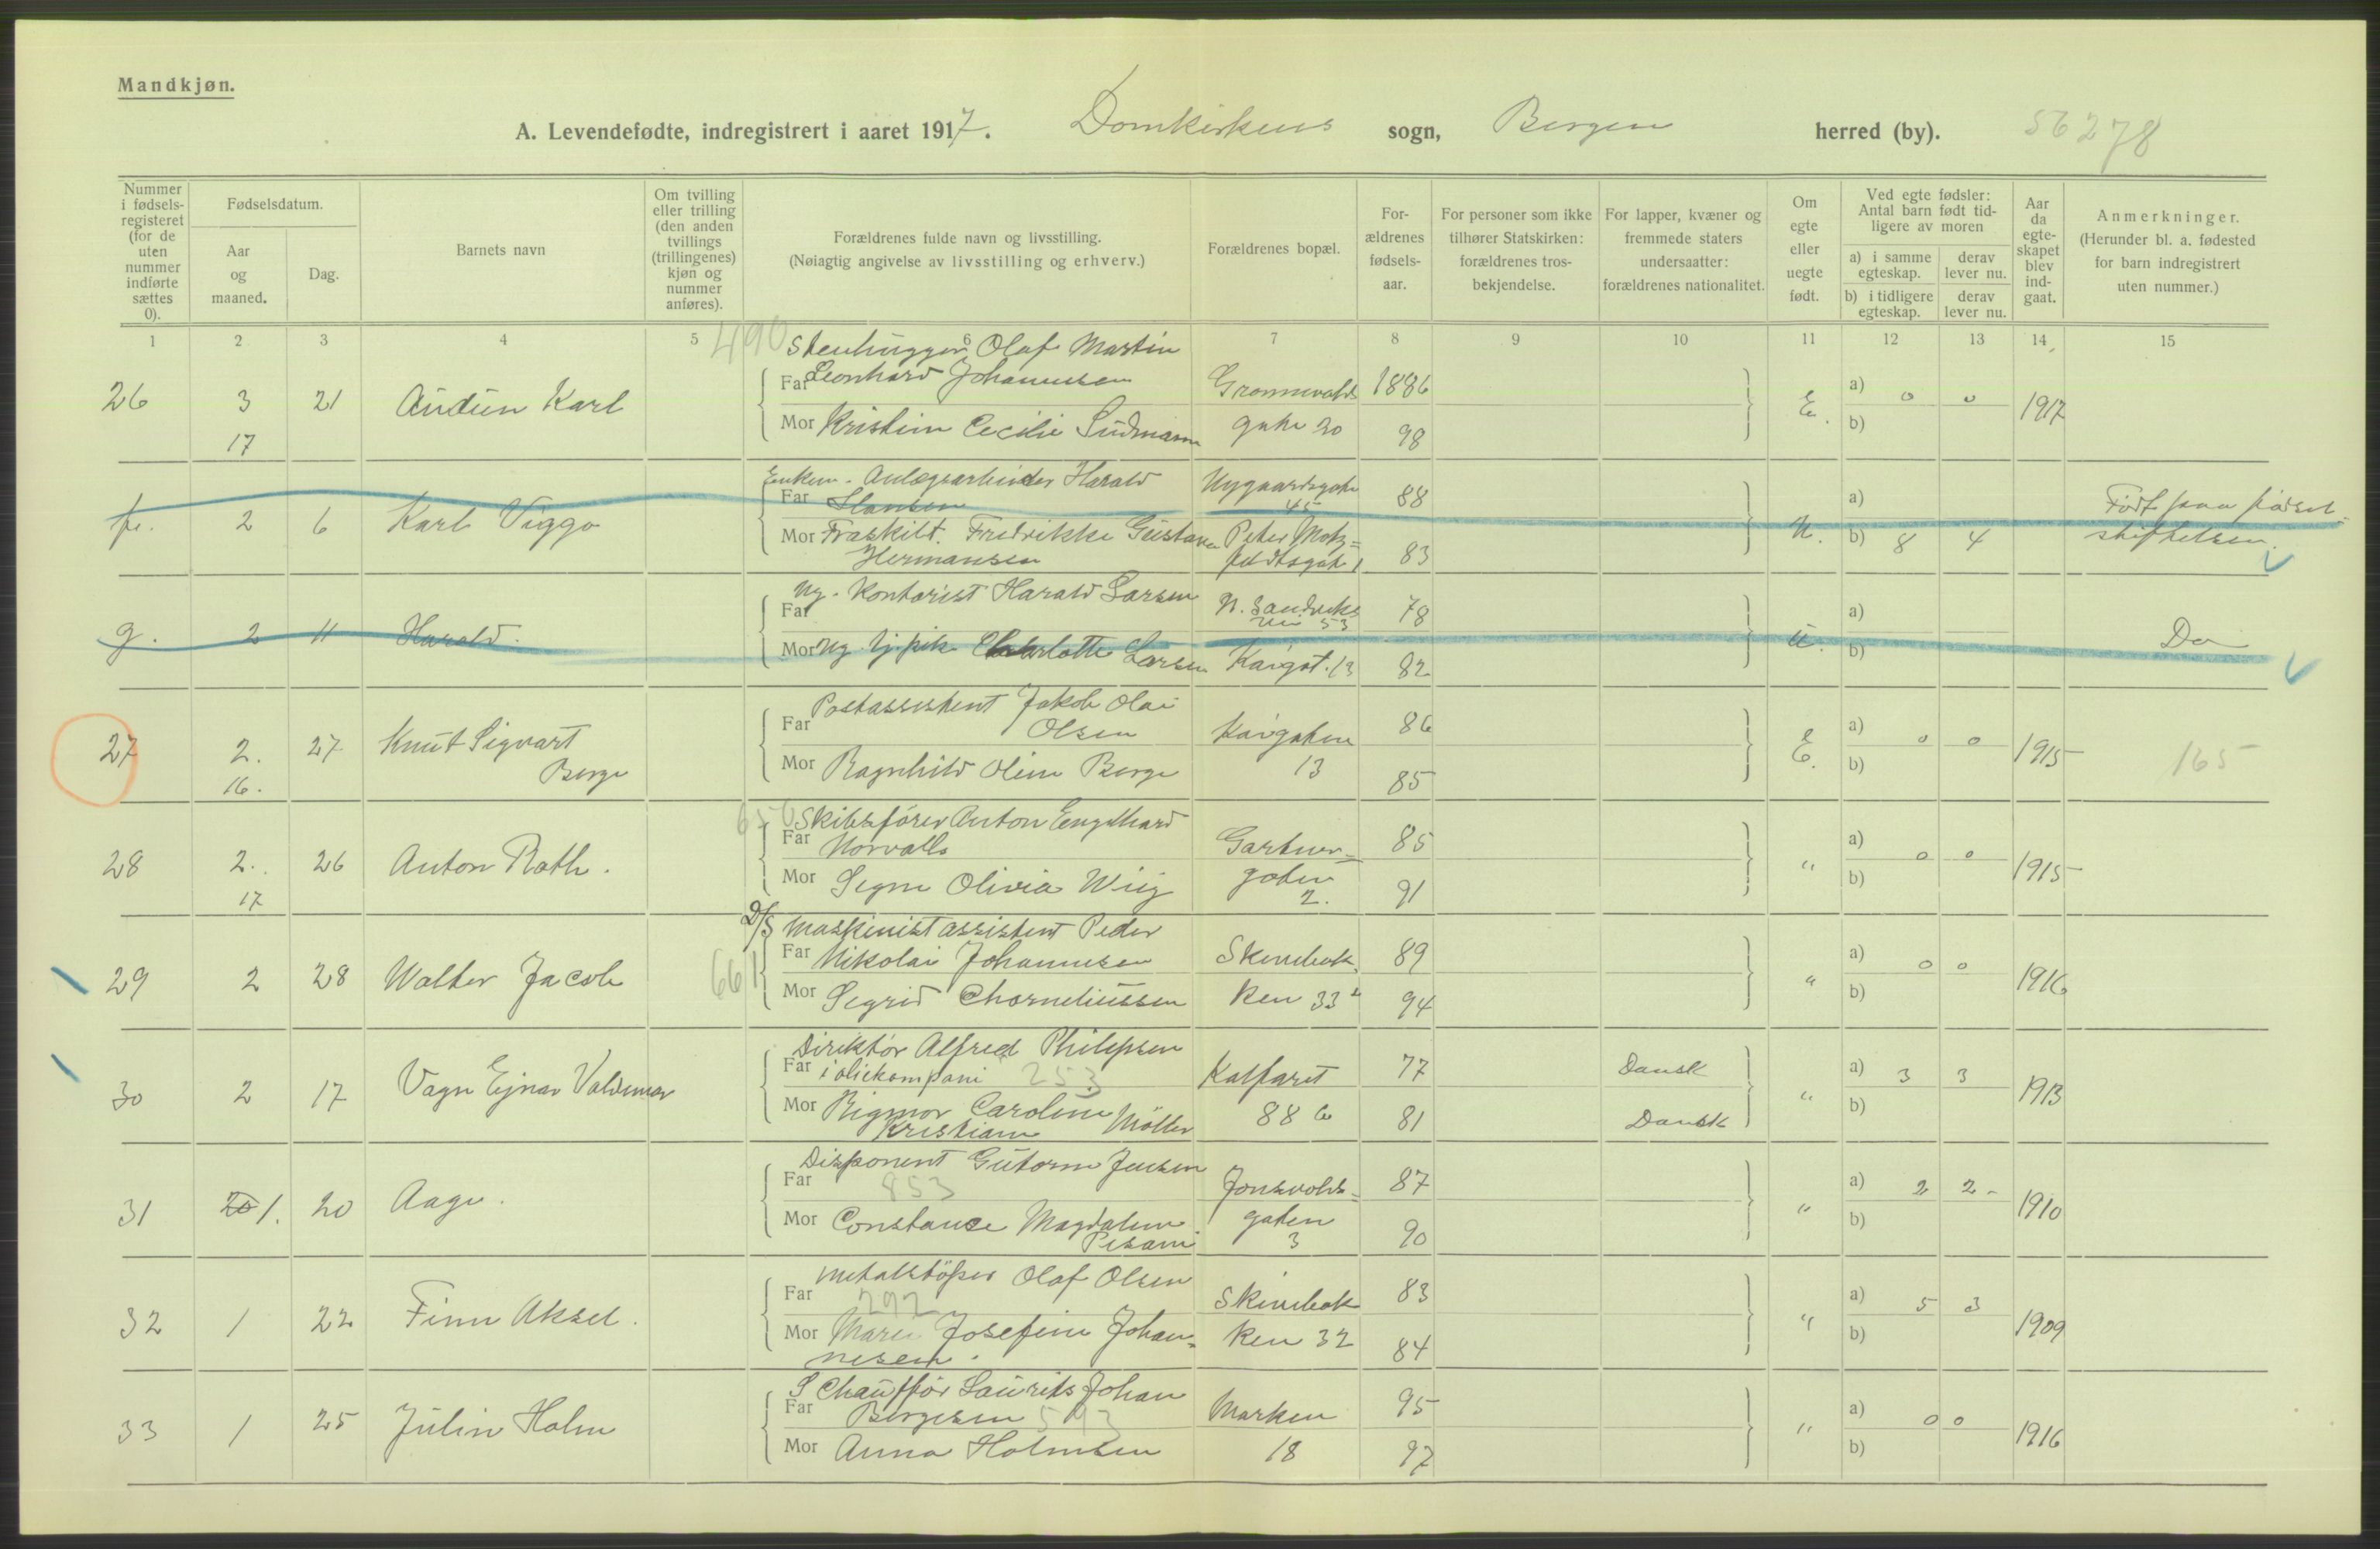 Mandkjøn.
A. Levendefødte, indregistrert i aaret 1917. Domkirkens sogn, Bergen herred (by). 56278
Nummer i fødsels-registeret (for de uten nummer indførte sættes 0).
Fødselsdatum.
Aar og maaned.
Dag.
Barnets navn
Om tvilling eller trilling (den anden tvillings (trillingenes) kjøn og nummer anføres).
Forældrenes fulde navn og livsstilling.
(Nøiagtig angivelse av livsstilling og erhverv.)
Forældrenes bopæl.
For-ældrenes fødsels-aar.
For personer som ikke tilhører Statskirken: forældrenes tros-bekjendelse.
For lapper, kvæner og fremmede staters undersaatter: forældrenes nationalitet.
Om egte eller uegte født.
Ved egte fødsler: Antal barn født tid-ligere av moren
a) i samme egteskap. derav lever nu.
b) i tidligere egteskap. derav lever nu.
Aar da egte-skapet blev ind-gaat.
Anmerkninger.
(Herunder bl. a. fødested for barn indregistrert uten nummer.)
1 2 3 4 5 6 7 8 9 10 11 12 13 14 15
490 Stenhugger Olaf Martin
26 3 21 Audun Karl Far Leonhard Johannesen 1886 E. a) 0 0 1917
17 Mor Kristine Cecilie Sudmann gate 20 98 b)
Enkem. Anlægsarbeider Harald Nygaardsgate
f. 2 6 Karl Viggo Far Hansen 45 88 U. a) Født paa fødsels-
Mor Fraskilt. Fredrikke Gustava Peter Motz= 83 b) 8 4 stiftelsen.
Hermansen feldtsgate 1
Ug. Kontorist Harald Larsen N. Sandviks
g. 2 11 Harald. Far vei 53 78 U. a) Do
Mor Ug. tj.pik Charlotte Larsen Kaigt. 13 82 b)
Postassistent Jakob Olai
27 2. 27 Knut Sigvart Far Olsen Kaigaten 86 E. a) 0 0 1915 165
16. Berge Mor Ragnhild Oline Berge 13 85 b)
650 Skibsfører Anton Engelhard
28 2. 26 Anton Rath. Far Norvalls Gartner= 85 " a) 0 0 1915
17 Mor Signe Olivia Wiig gaten 2. 91 b)
D/S Maskinistassistent Peder
29 2 28 Walter Jacob 661 Far Nikolai Johannesen Skivebak 89 " a) 0 0 1916
Mor Sigrid Chorneliussen ken 33 94 b)
Direktør Alfred Philipsen
30 2 17 Vagn Ejnar Valdemar Far i oliekompani 253 Kalfaret 77 Dansk " a) 3 3 1913
Mor Rigmor Caroline Kristiane Möller 88 81 Dansk b)
Disponent Gutorm Jensen
31 20 1. 20 Aage. Far 853 Jonsvolds= 87 " a) 2 2 - 1910
Mor Constance Magdalene Pisani gaten 3 90 b)
Metalstøper Olaf Olsen
32 1 22 Finn Aksel. Far 292 Skivebak 83 " a) 5 3 1909
Mor Marie Josefine Johan= ken 32 84 b)
nesen.
S Chauffør Laurits Johan
33 1 25 Julin Holm Far Borgesen 593 Marken 95 " a) 0 0 1916
Mor Anna Holmsen 18 97 b)